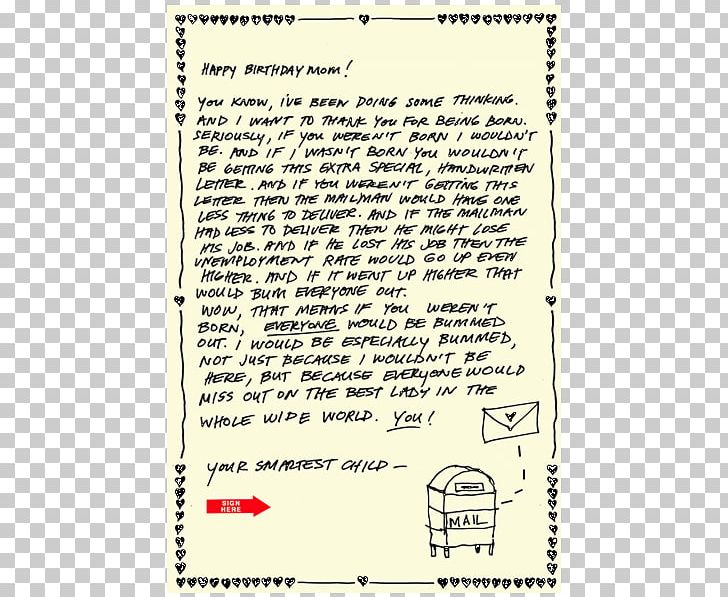 HAPPY BIRTHDAY MOM!
YOU KNOW, I'VE BEEN DOING SOME THINKING.
AND I WANT TO THANK YOU FOR BEING BORN.
SERIOUSLY, IF YOU WEREN'T BORN I WOULDN'T
BE. AND IF I WASN'T BORN YOU WOULDN'T
BE GETTING THIS EXTRA SPECIAL, HANDWRITTEN
LETTER. AND IF YOU WEREN'T GETTING THIS
LETTER THEN THE MAILMAN WOULD HAVE ONE
LESS THING TO DELIVER. AND IF THE MAILMAN
HAD LESS TO DELIVER THEN HE MIGHT LOSE
HIS JOB. AND IF HE LOST HIS JOB THEN THE
UNEMPLOYMENT RATE WOULD GO UP EVEN
HIGHER. AND IF IT WENT UP HIGHER THAT
WOULD BUM EVERYONE OUT.
WOW, THAT MEANS IF YOU WEREN'T
BORN, EVERYONE WOULD BE BUMMED
OUT. I WOULD BE ESPECIALLY BUMMED,
NOT JUST BECAUSE I WOULDN'T BE
HERE, BUT BECAUSE EVERYONE WOULD
MISS OUT ON THE BEST LADY IN THE
WHOLE WIDE WORLD. YOU!
YOUR SMARTEST CHILD —
SIGN
HERE
MAIL